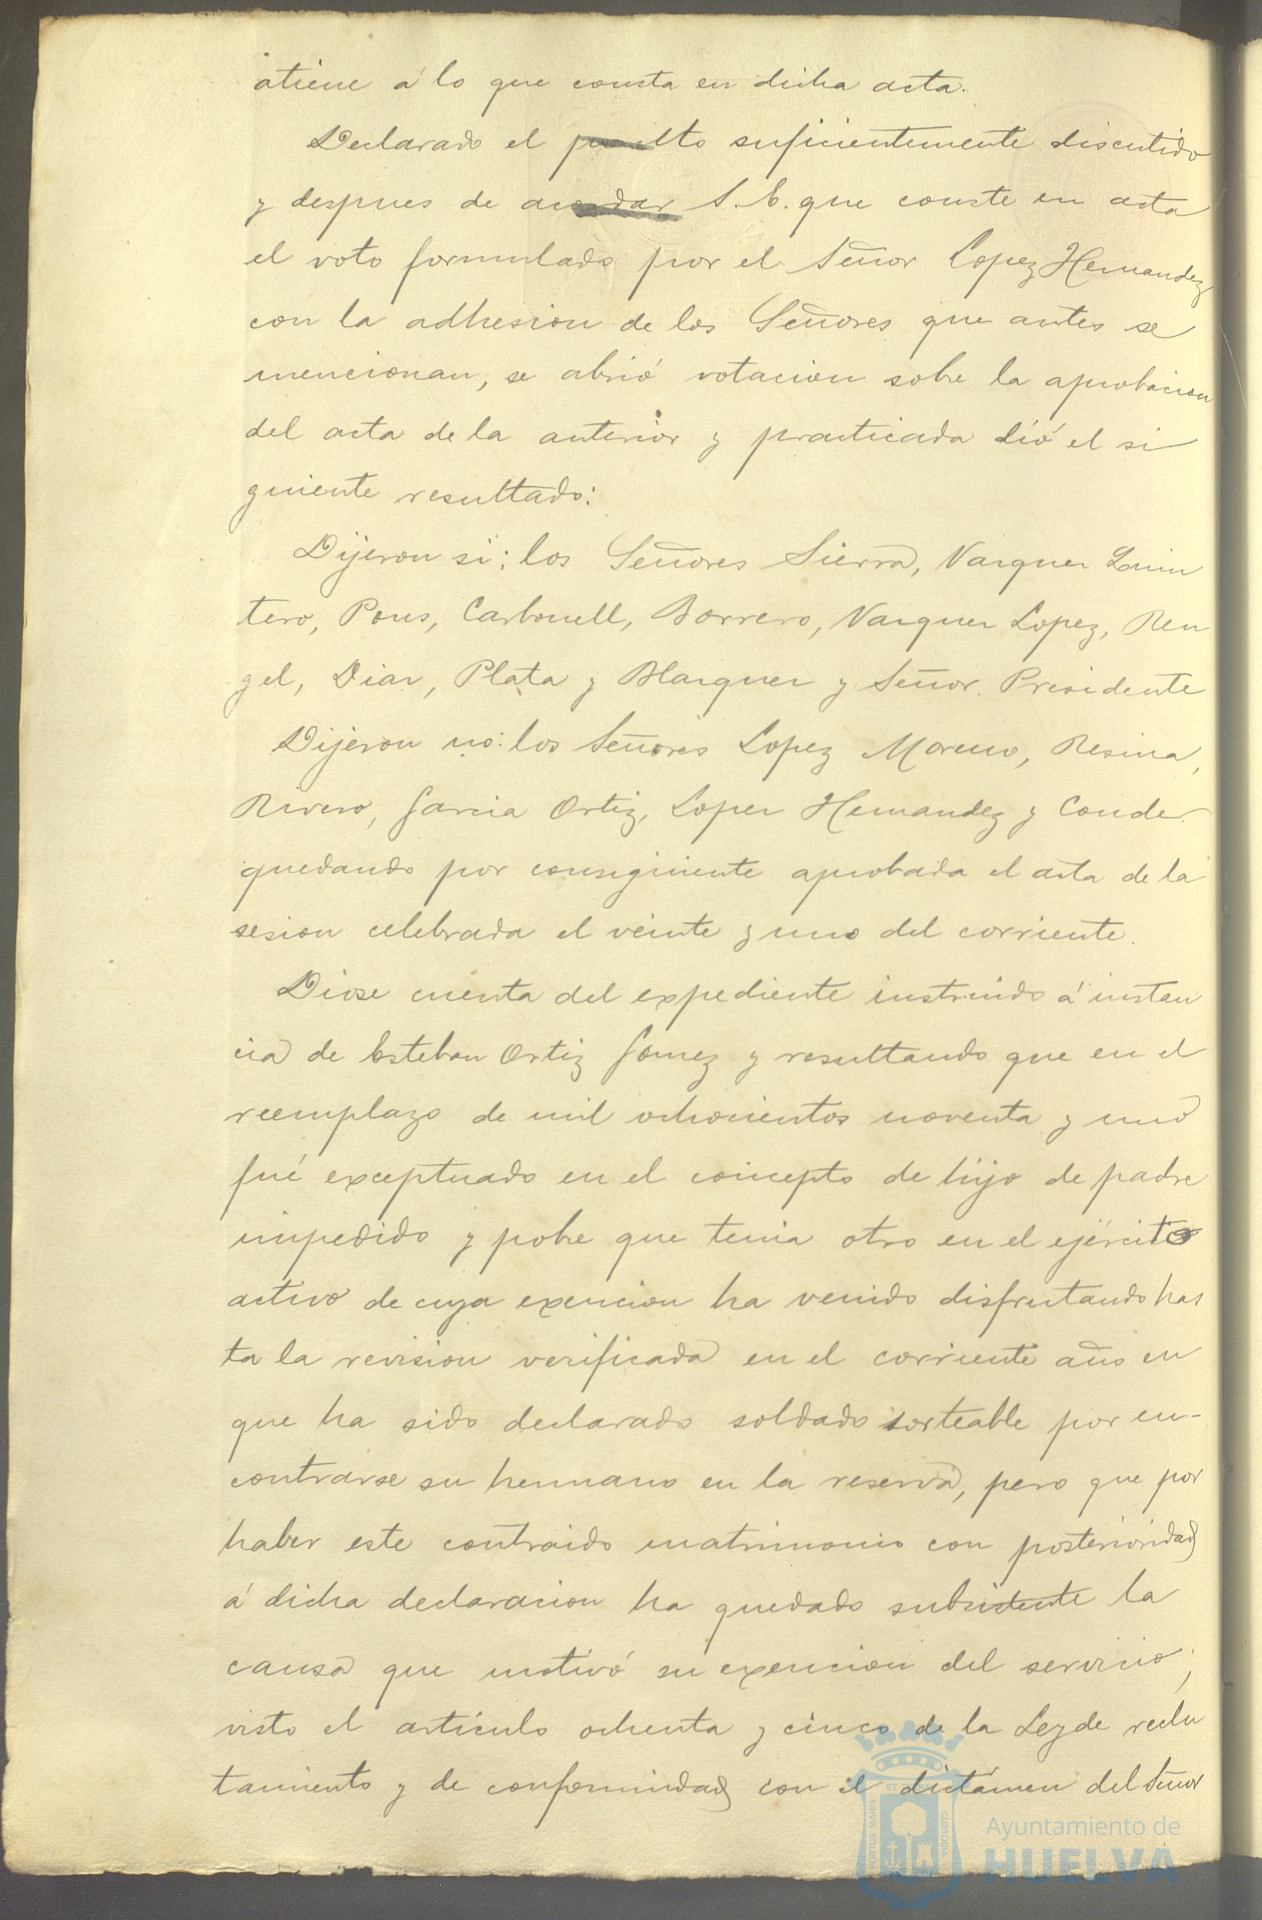 atiene á lo que consta en dicha acta.
Declarado el punto suficientemente discutido
y despues de acordar S. E. que conste en acta
el voto formulado por el Señor Lopez Hernandez
con la adhesion de los Señores que antes se
mencionan, se abrió votacion sobre la aprobacion
del acta de la anterior y practicada dió el si
guiente resultado:
Dijeron si: los Señores Sierra, Vazquez Quin
tero, Pons, Carbonell, Borrero, Vazquez Lopez, Ren
gel, Diaz, Plata y Blazquez y Señor Presidente
Dijeron no: los Señores Lopez Moreno, Resina,
Rivero, Garcia Ortiz, Lopez Hernandez y Conde
quedando por consiguiente aprobada el acta de la
sesion celebrada el veinte y uno del corriente.
Diose cuenta del expediente instruido á instan
cia de Esteban Ortiz Gomez y resultando que en el
reemplazo de mil ochocientos noventa y uno
fué exceptuado en el concepto de hijo de padre
impedido y pobre que tenia otro en el ejército
activo de cuya exencion ha venido disfrutando has
ta la revision verificada en el corriente año en
que ha sido declarado soldado sorteable por en-
contrarse su hermano en la reserva, pero que por
haber este contraido matrimonio con posterioridad
á dicha declaracion ha quedado subsistente la
causa que motivó su exencion del servicio;
visto el artículo ochenta y cinco de la Ley de reclu
tamiento y de conformidad con el dictámen del Señor
Ayuntamiento de
HUELVA